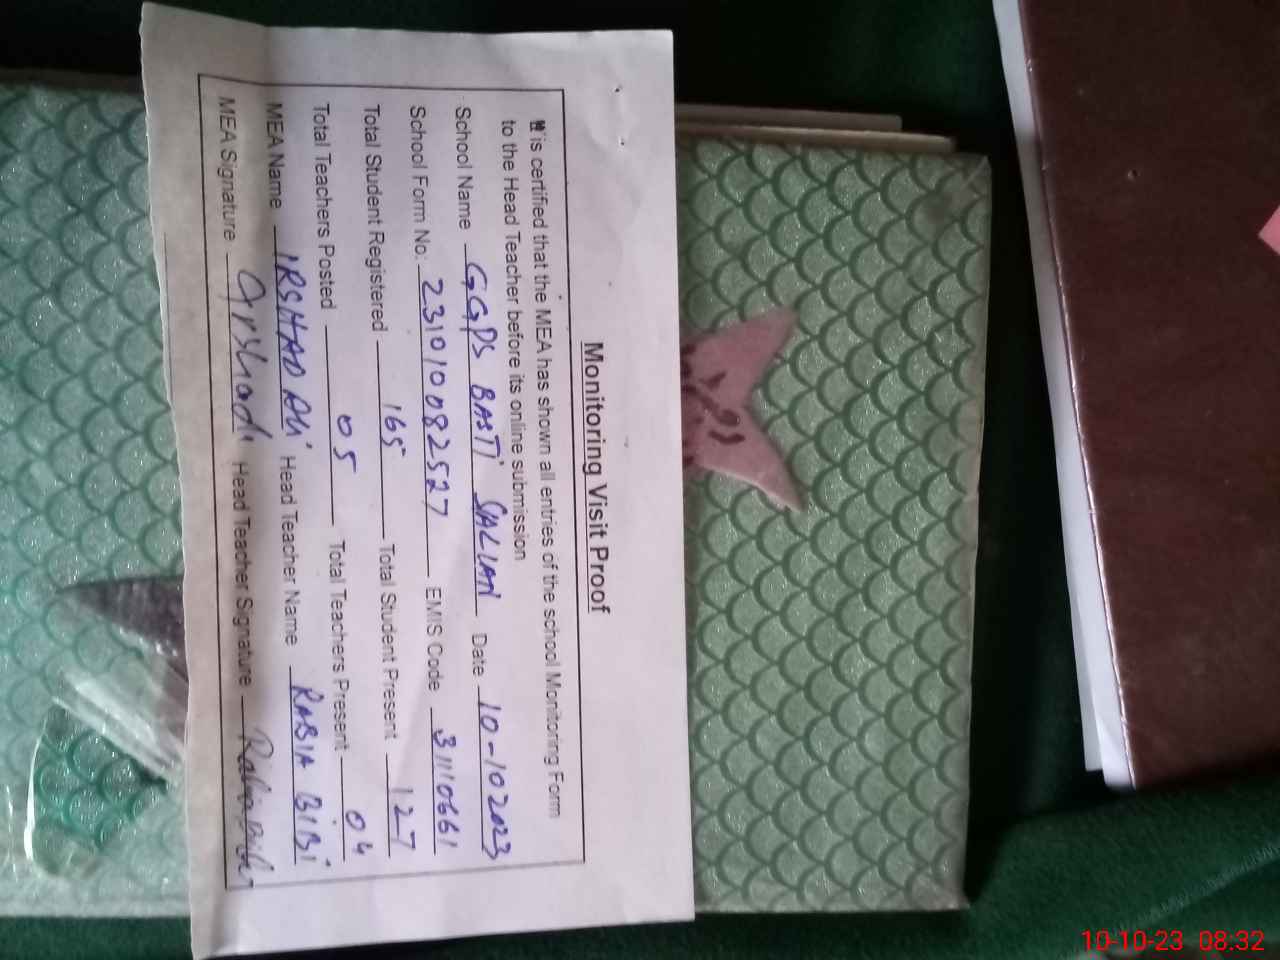 Monitoring Visit Proof
It is certified that the MEA has shown all entries of the school Monitoring Form
to the Head Teacher before its online submission
School Name GGPS BASTI SALIAN Date 10-102023
School Form No: 2310100082527 EMIS Code 31110661
Total Student Registered 165 Total Student Present 127
Total Teachers Posted 05 Total Teachers Present 04
MEA Name IRSHAD Ali Head Teacher Name RABIA BIBI
MEA Signature Irshad Head Teacher Signature Rabia Bibi
10-10-23 08:32